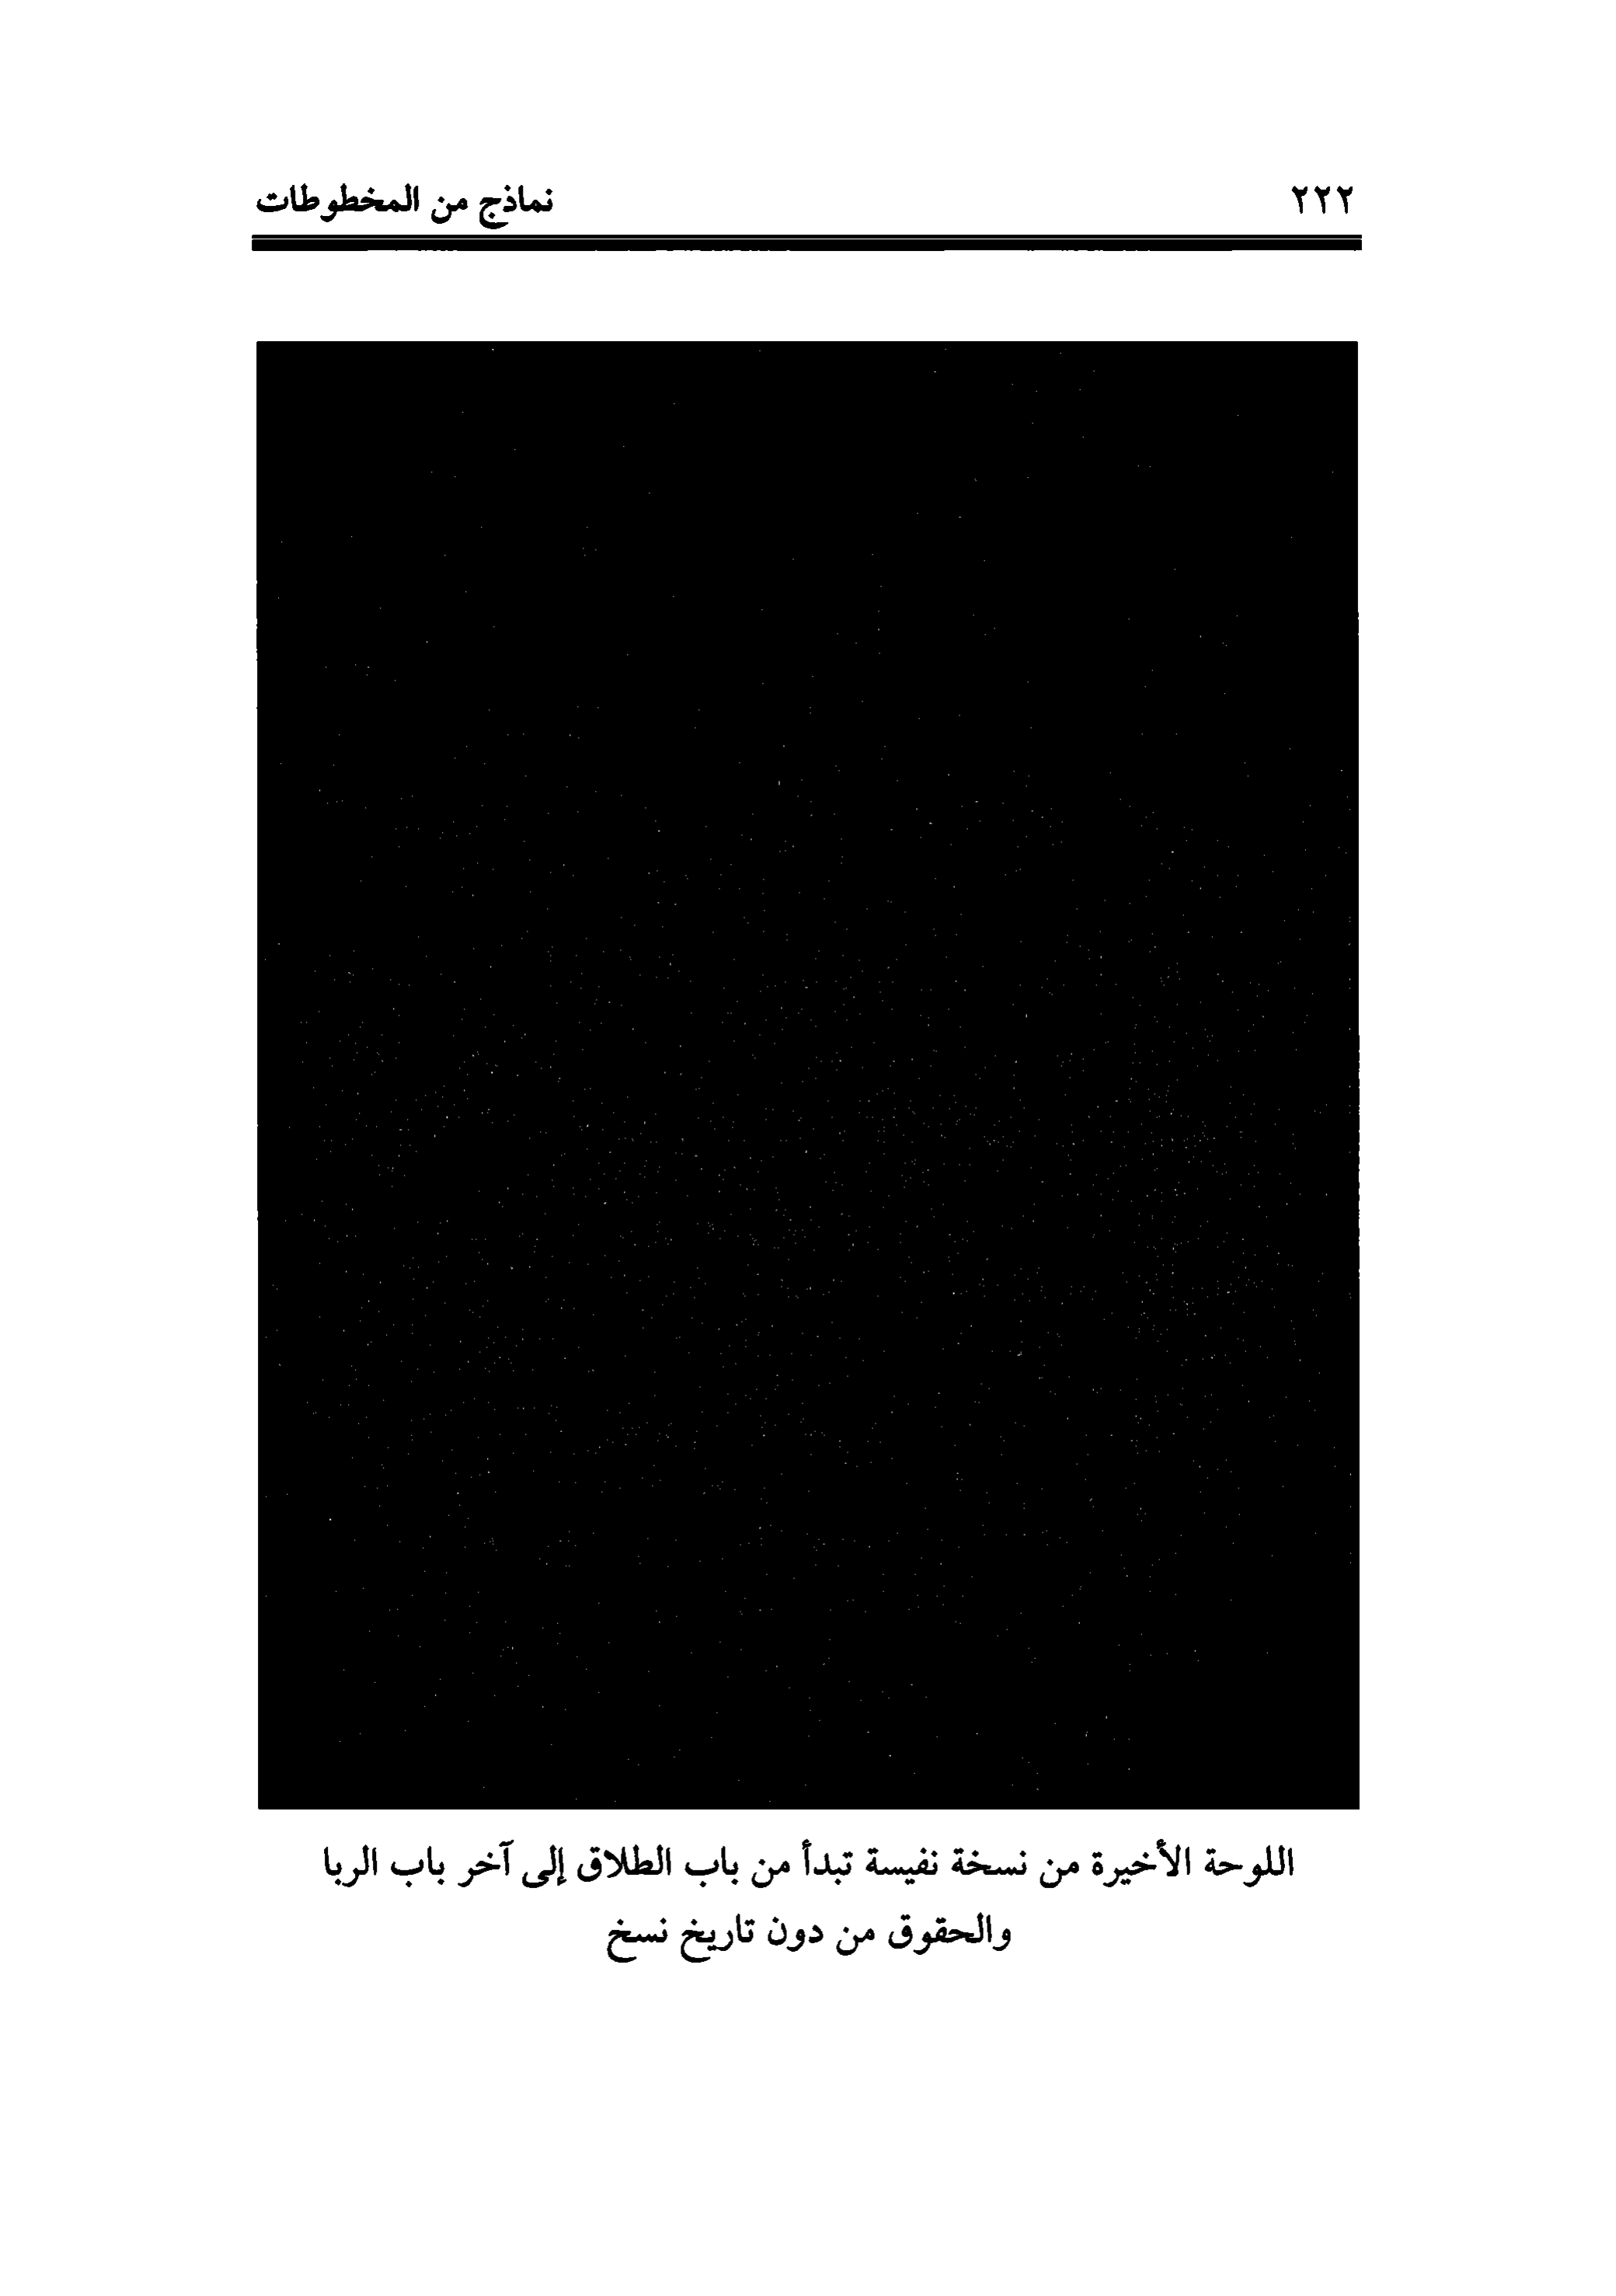 ٢٢٢ نماذج من المخطوطات
اللوحة الأخيرة من نسخة نفيسة تبدأ من باب الطلاق إلى آخر باب الربا
والحقوق من دون تاريخ نسخ